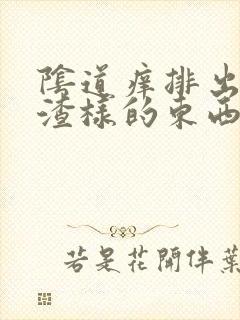 陰道痒排出
渣樣的東西
若是花開伴葉